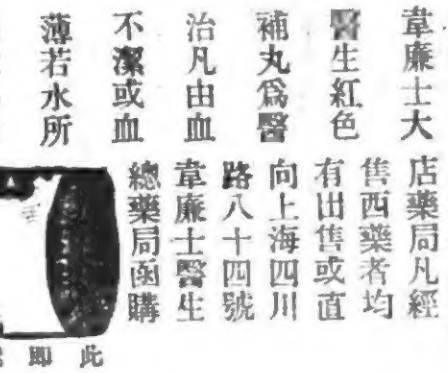 韋廉士大
醫生紅色
補丸爲醫
治凡由血
不潔或血
薄若水所
店藥局凡經
售西藥者均
有出售或直
向上海四川
路八十四號
韋廉士醫生
總藥局函購
此
即